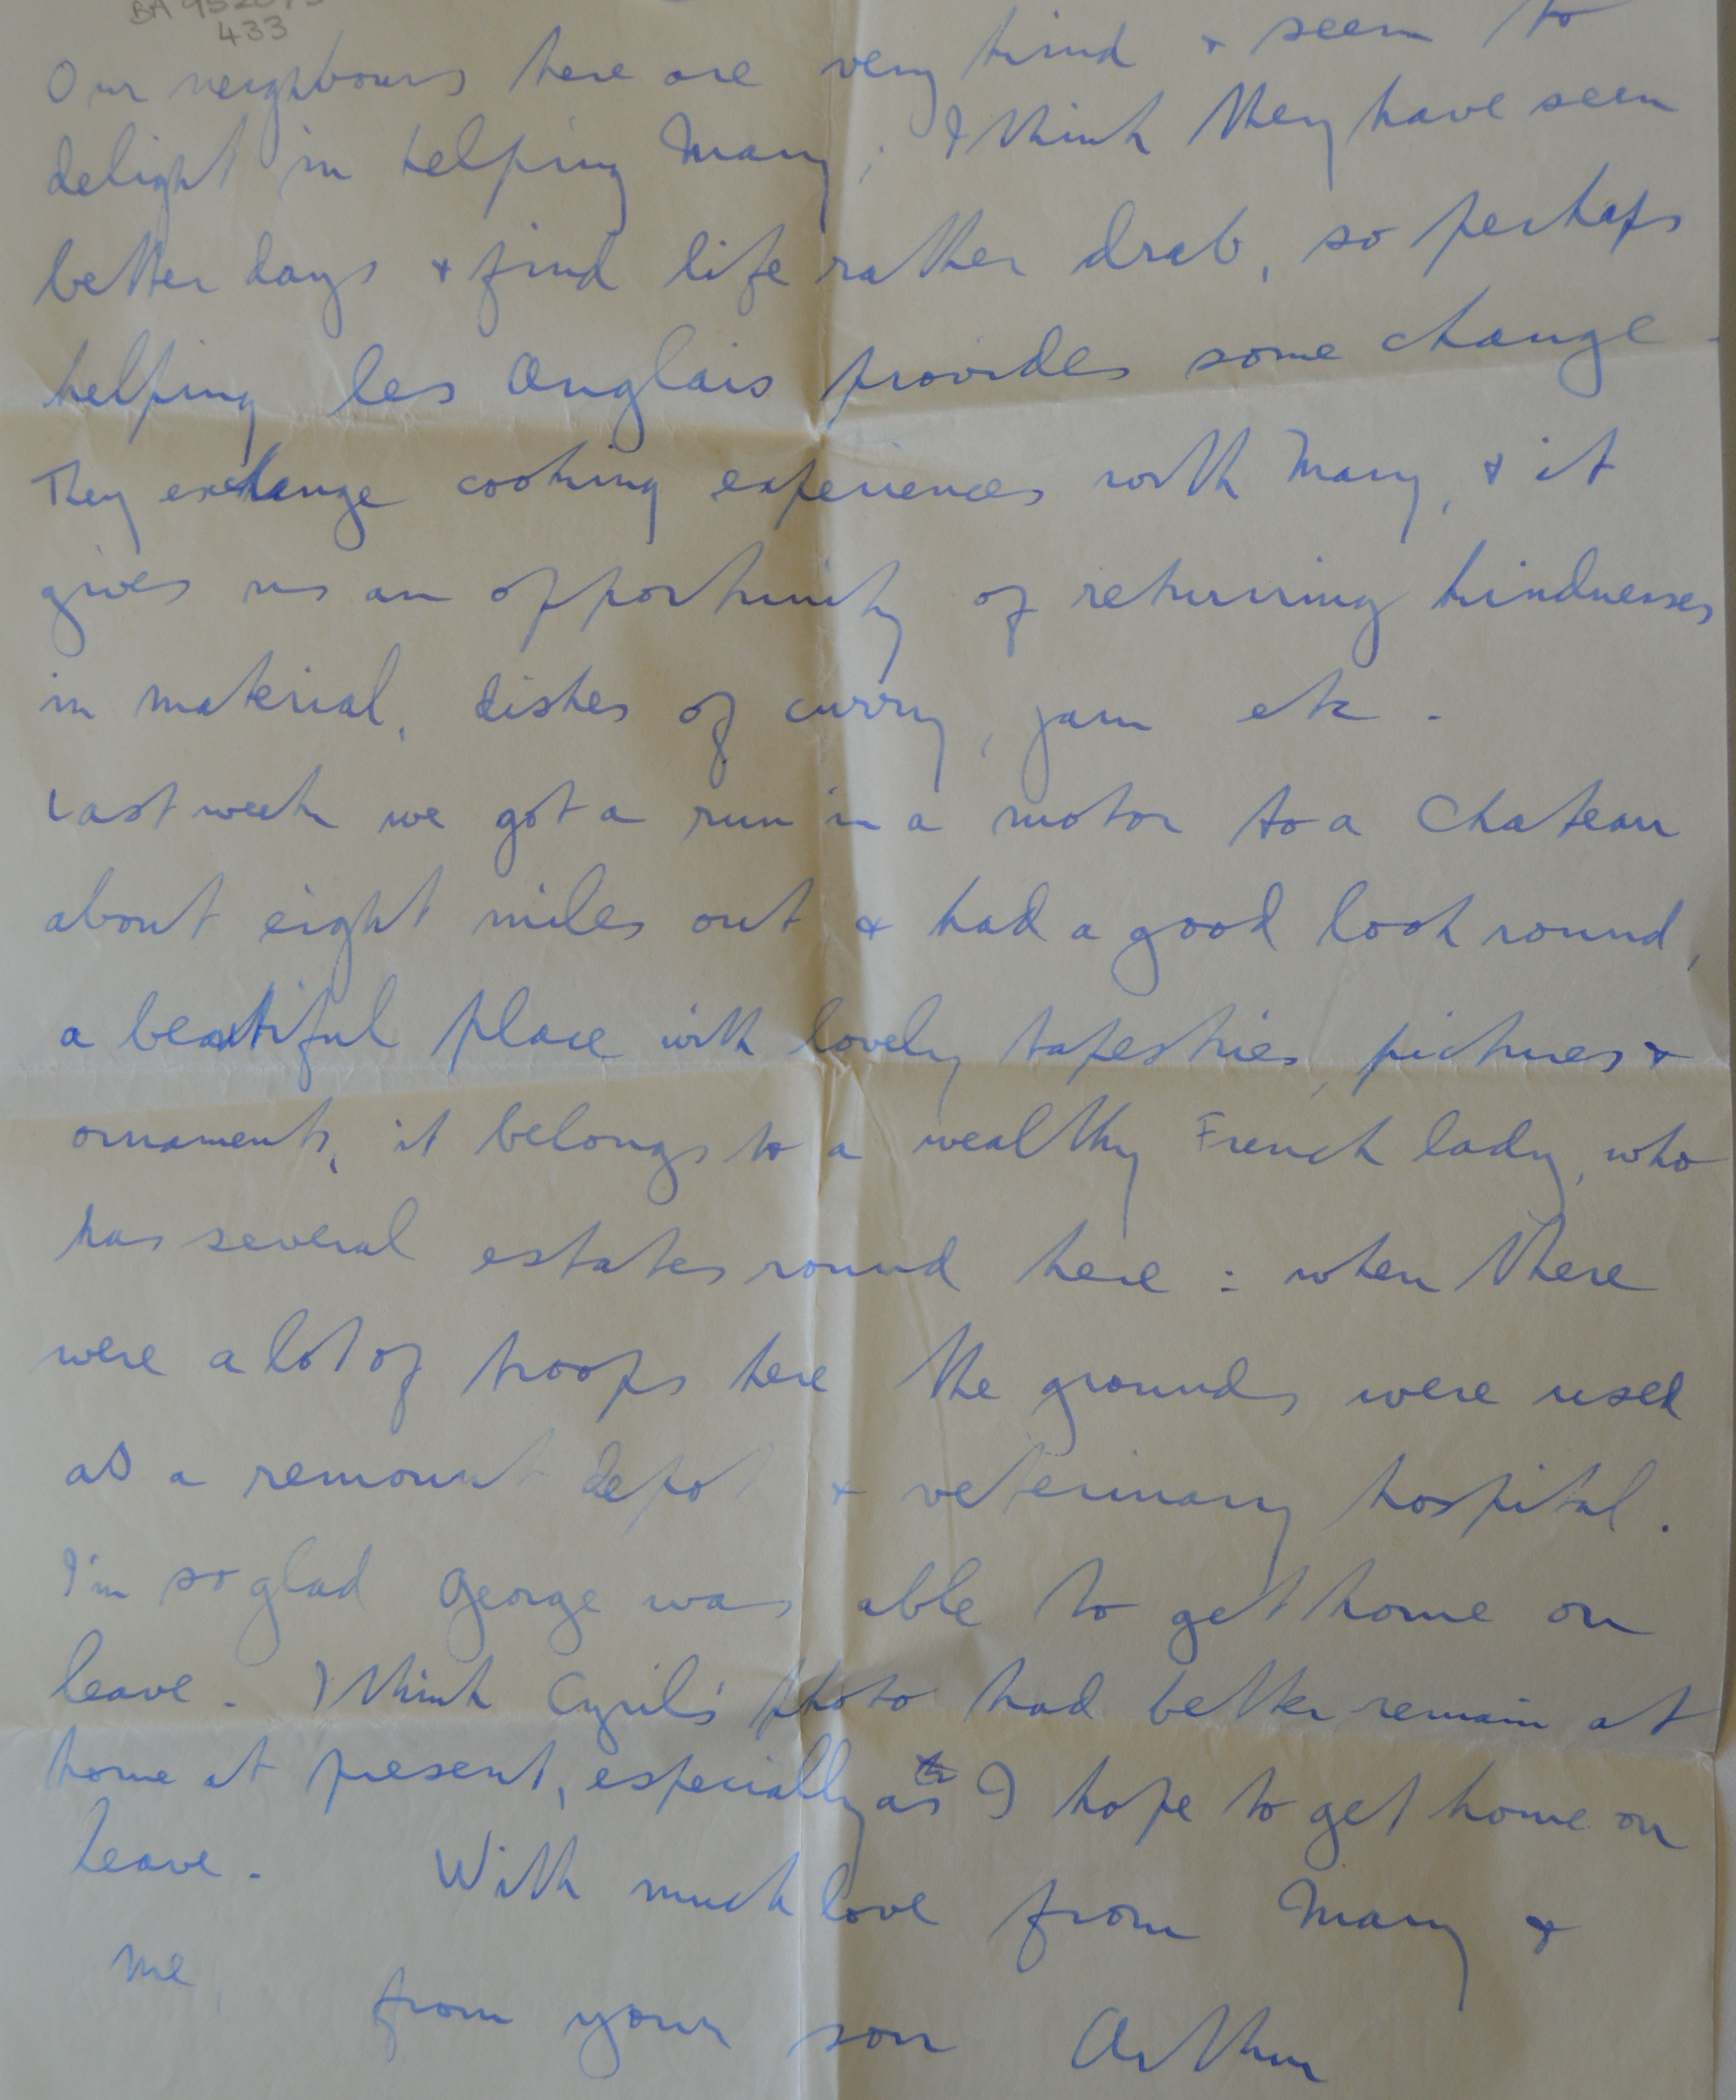 433
Our neighbours here are very kind & seem to
delight in helping Mary; I think they have seen
better days & find life rather drab, so perhaps
helping les Anglais provides some change.
They exchange cooking experiences with Mary, & it
gives us an opportunity of returning kindnesses
in material, dishes of curry, jam etc.
Last week we got a run in a motor to a Chateau
about eight miles out & had a good look round,
a beautiful place with lovely tapestries, pictures &
ornaments, it belongs to a wealthy French lady, who
has several estates round here: when there
were a lot of troops here the grounds were used
as a remount depot & veterinary hospital.
I'm so glad George was able to get home on
leave. I think Cyril's photo had better remain at
home at present, especially as I hope to get home on
leave. With much love from Mary &
me, from your son Arthur